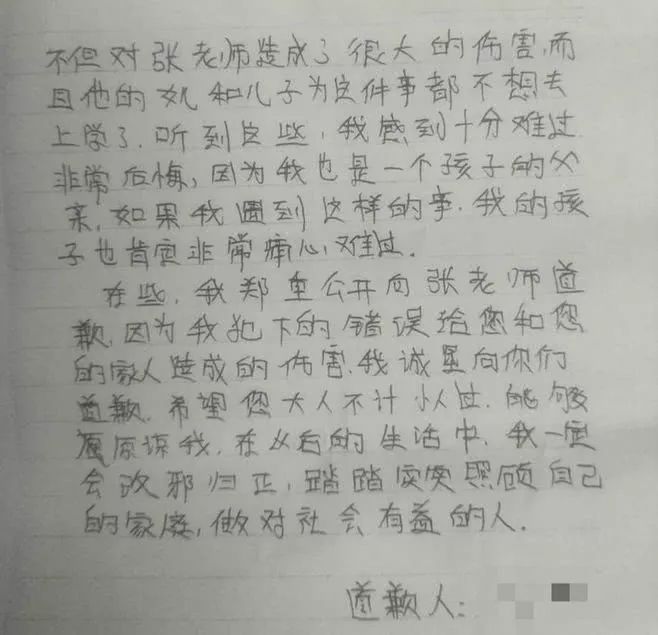 不但对张老师造成了很大的伤害,而
且他的女儿和儿子为这件事都不想去
上学了.听到这些,我感到十分难过
非常后悔,因为我也是一个孩子的父
亲,如果我遇到这样的事.我的孩
子也肯定非常痛心,难过.
在些,我郑重公开向张老师道
歉,因为我犯下的错误给您和您
的家人造成的伤害.我诚垦向你们
道歉.希望您大人不计小人过.能够
原谅我.在以后的生活中.我一定
会改邪归正,踏踏实实照顾自己
的家庭,做对社会有益的人.
道歉人: